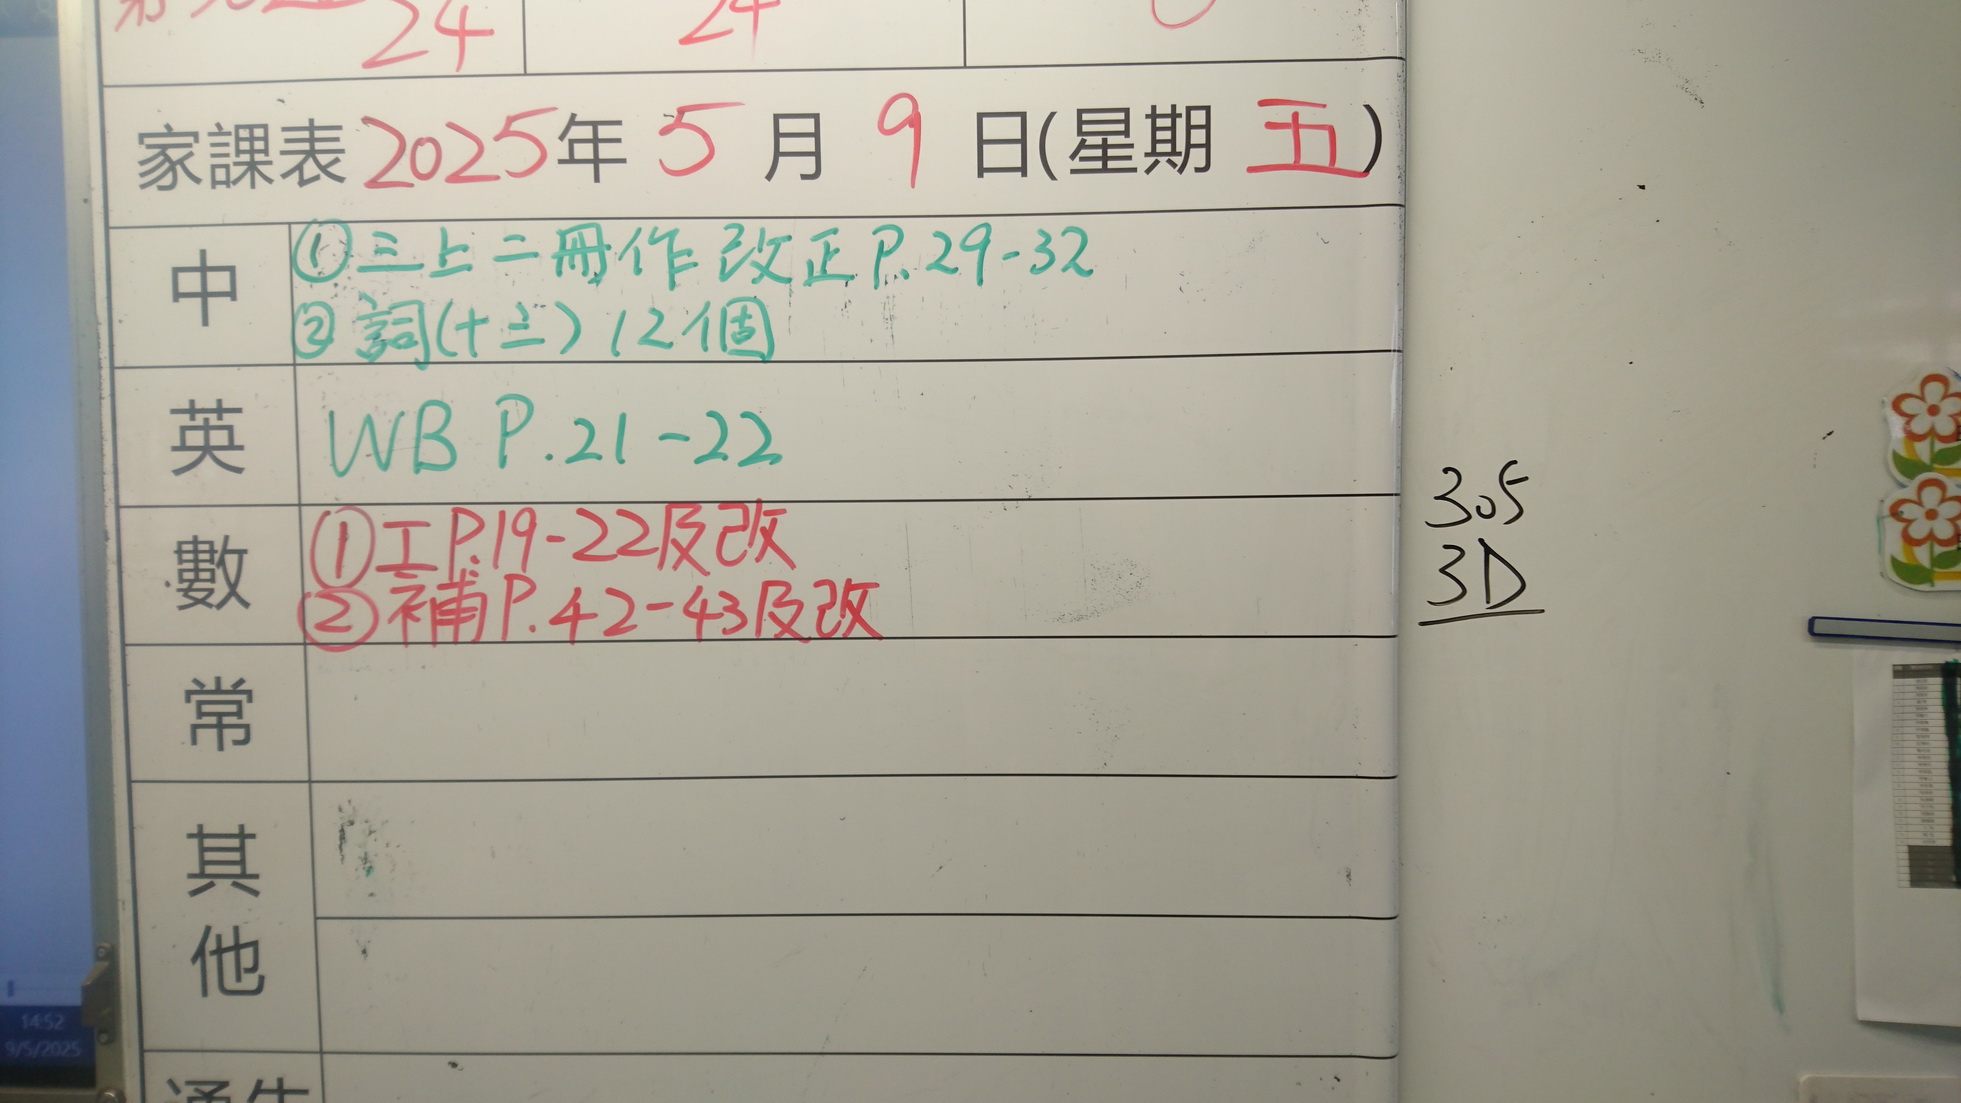 24
24
家課表 2025年 5 月 9 日(星期 五)
中
①三上二冊作 改正P.29-32
②詞(十三) 12個
英
WB P.21-22
數
①工P.19-22及改
②補P.42-43及改
常
其他
通告
305
3D
14:52
9/5/2025